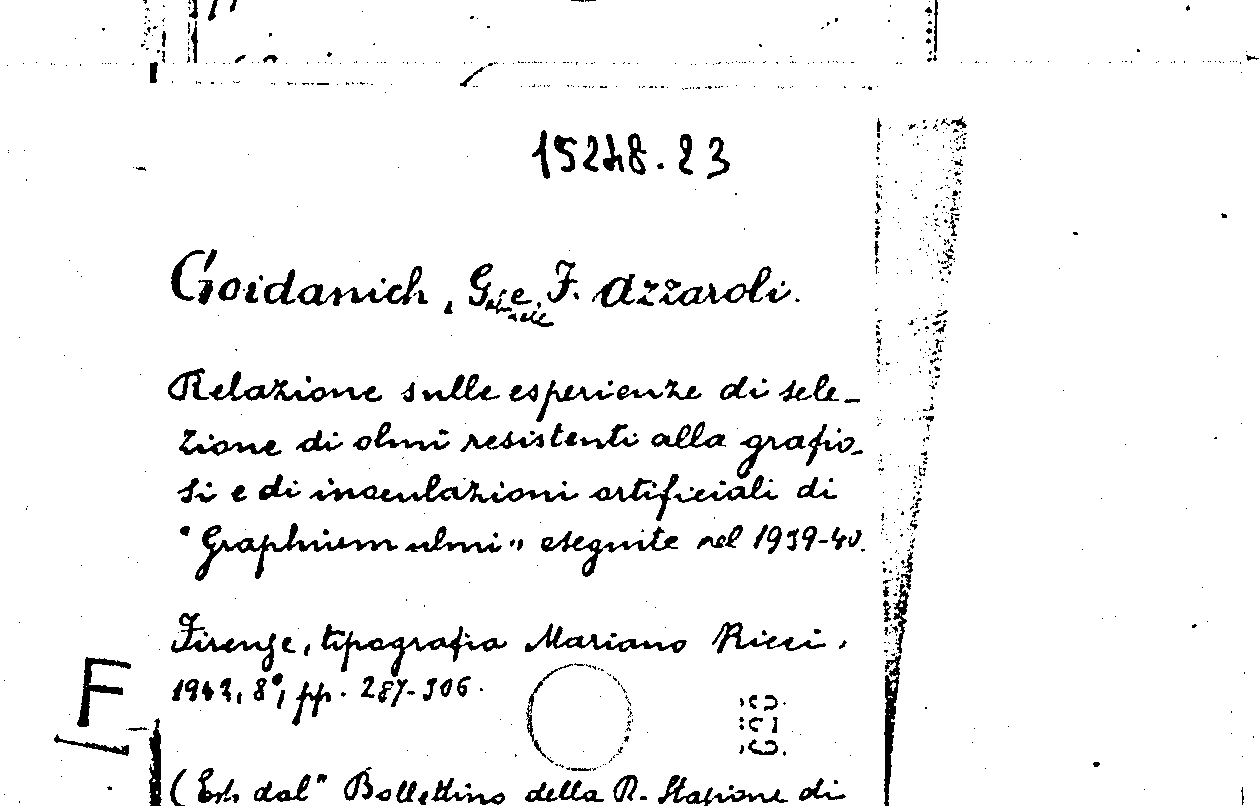 15248.23
Goidanich, G. e F. Azzaroli.
Gabriele
Relazione sulle esperienze di sele-
zione di olmi resistenti alla grafio-
si e di inoculazioni artificiali di
"Graphium ulmi" eseguite nel 1939-40.
Firenze, tipografia Mariano Ricci,
1943, 8°, pp. 287-306.
F
(Estr. dal "Bollettino della R. Stazione di